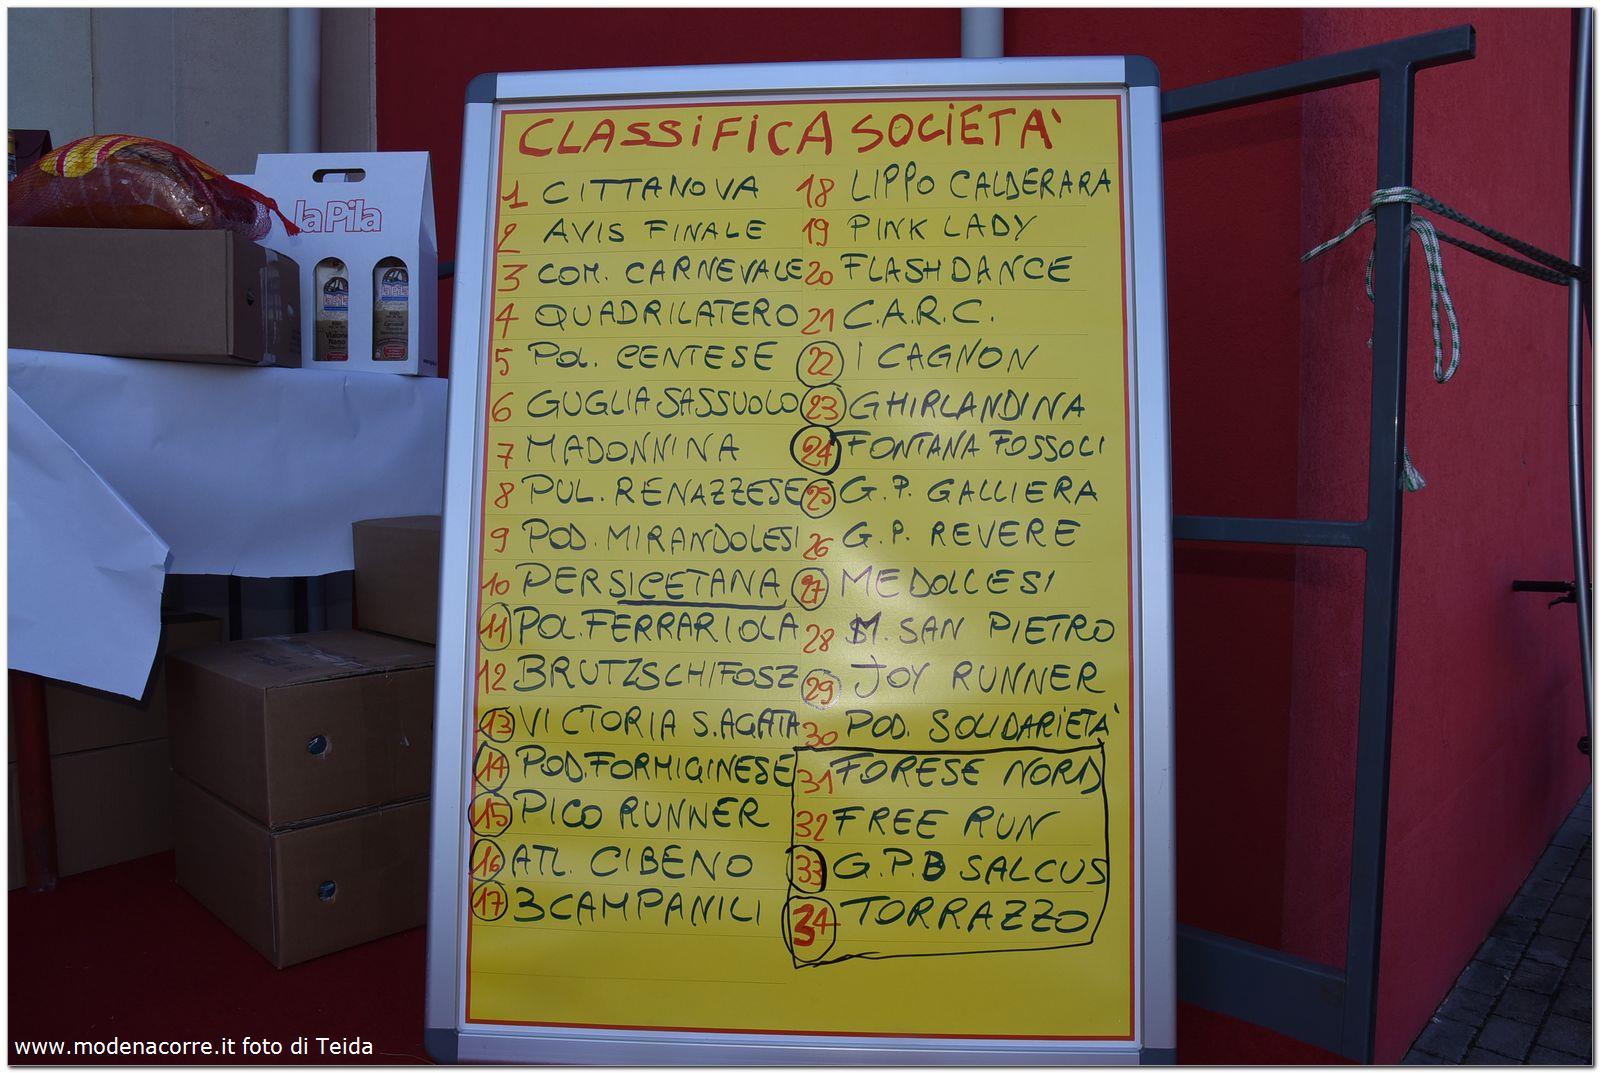 CLASSIFICA SOCIETA'
1 CITTANOVA
2 AVIS FINALE
3 COM. CARNEVALE
4 QUADRILATERO
5 POL. CENTESE
6 GUGLIA SASSUOLO
7 MADONNINA
8 PUL. RENAZZESE
9 POD. MIRANDOLESI
10 PERSICETANA
11 POL. FERRARIOLA
12 BRUTZSCHIFOSZ
13 VICTORIA S. AGATA
14 POD. FORMIGINESE
15 PICO RUNNER
16 ATL. CIBENO
17 3 CAMPANILI
18 LIPPO CALDERARA
19 PINK LADY
20 FLASHDANCE
21 C.A.R.C.
22 I CAGNON
23 GHIRLANDINA
24 FONTANA FOSSOLI
25 G.P. GALLIERA
26 G.P. REVERE
27 MEDOLLESI
28 M. SAN PIETRO
29 JOY RUNNER
30 POD. SOLIDARIETA'
31 FORESE NORD
32 FREE RUN
33 G.P.B SALCUS
34 TORRAZZO
la Pila
Vialone
Nano
www.modenacorre.it foto di Teida